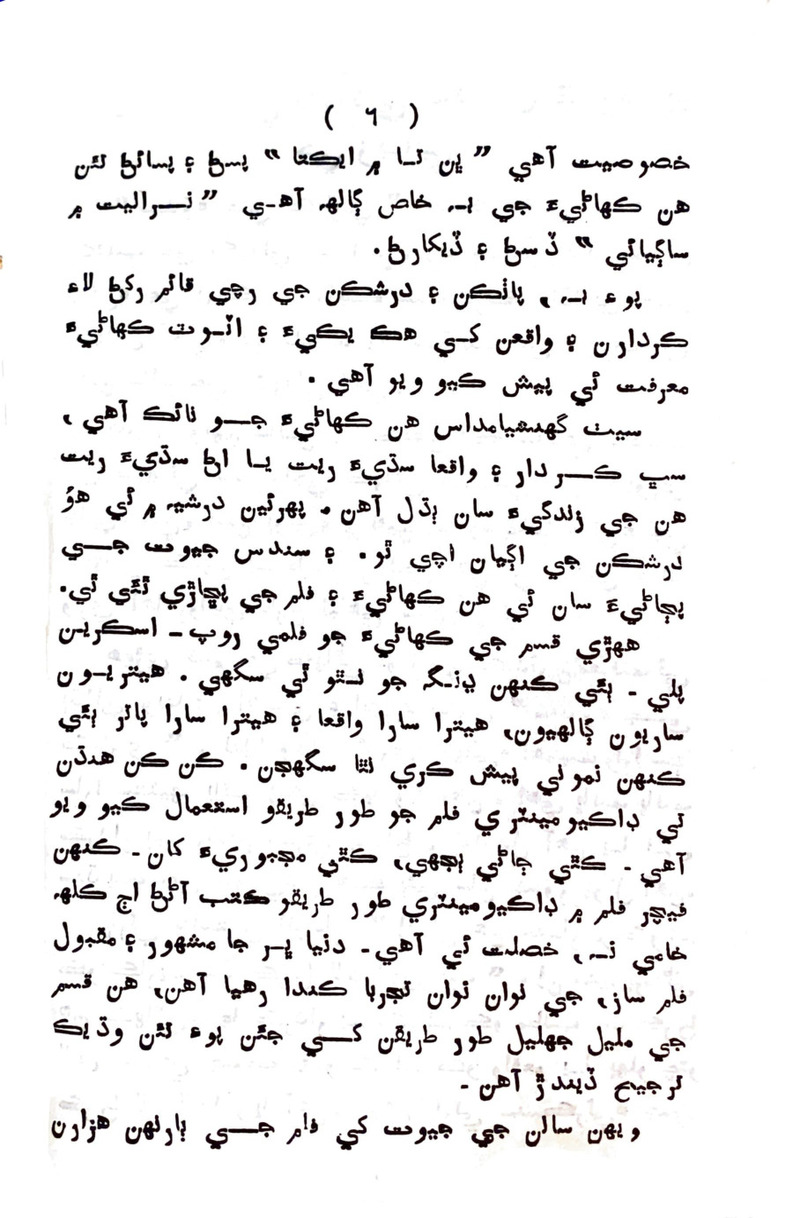 ( ٦ )
خصوصيت آهي ” ڀن تا ۾ ايڪتا “ پسڻ ۽ پسائڻ تئن
هن ڪهاڻيءَ جي به خاص ڳالهه آهي ” نراليت ۾
ساڳيائي “ ڏسڻ ۽ ڏيکارڻ.
پوءِ به، پاٺڪن ۽ درشڪن جي رچي قائم رکڻ لاءِ
ڪردارن ۽ واقعن کي هڪ يڪيءَ ۽ اٽوٽ ڪهاڻيءَ
معرفت ئي پيش ڪيو ويو آهي.
سيٺ گهنشيامداس هن ڪهاڻيءَ جو نائڪ آهي،
سڀ ڪردار ۽ واقعا سڌيءَ ريت يا اڻ سڌيءَ ريت
هن جي زندگيءَ سان ٻڌل آهن. پهرئين درشيه ۾ ئي هوُ
درشڪن جي اڳيان اچي ٿو. ۽ سندس جيوت جي
پڄاڻيءَ سان ئي هن ڪهاڻيءَ ۽ فلم جي پڇاڙي ٿئي ٿي.
ههڙي قسم جي ڪهاڻيءَ جو فلمي روپ - اسڪرين
پلي - ٻئي ڪنهن ڍنگ جو نٿو ٿي سگهي. هيتريون
ساريون ڳالهيون، هيترا سارا واقعا ۽ هيترا سارا پاتر ٻئي
ڪنهن نموني پيش ڪري نٿا سگهجن. ڪن ڪن هنڌن
تي ڊاڪيومينٽري فلم جو طور طريقو استعمال ڪيو ويو
آهي - ڪٿي ڄاڻي ٻجهي، ڪٿي مجبوريءَ کان - ڪنهن
فيچر فلم ۾ ڊاڪيومينٽري طور طريقو ڪتب آڻڻ اڄ ڪلهه
خامي نه، خصلت ئي آهي - دنيا ڀر جا مشهور ۽ مقبول
فلم ساز، جي نوان نوان تجربا ڪندا رهيا آهن، هن قسم
جي مليل جهليل طور طريقن کي جڻن پوءِ تئن وڌيڪ
ترجيح ڏيندڙ آهن -
ويهن سالن جي جيوت کي فلم جي ٻارنهن هزارن